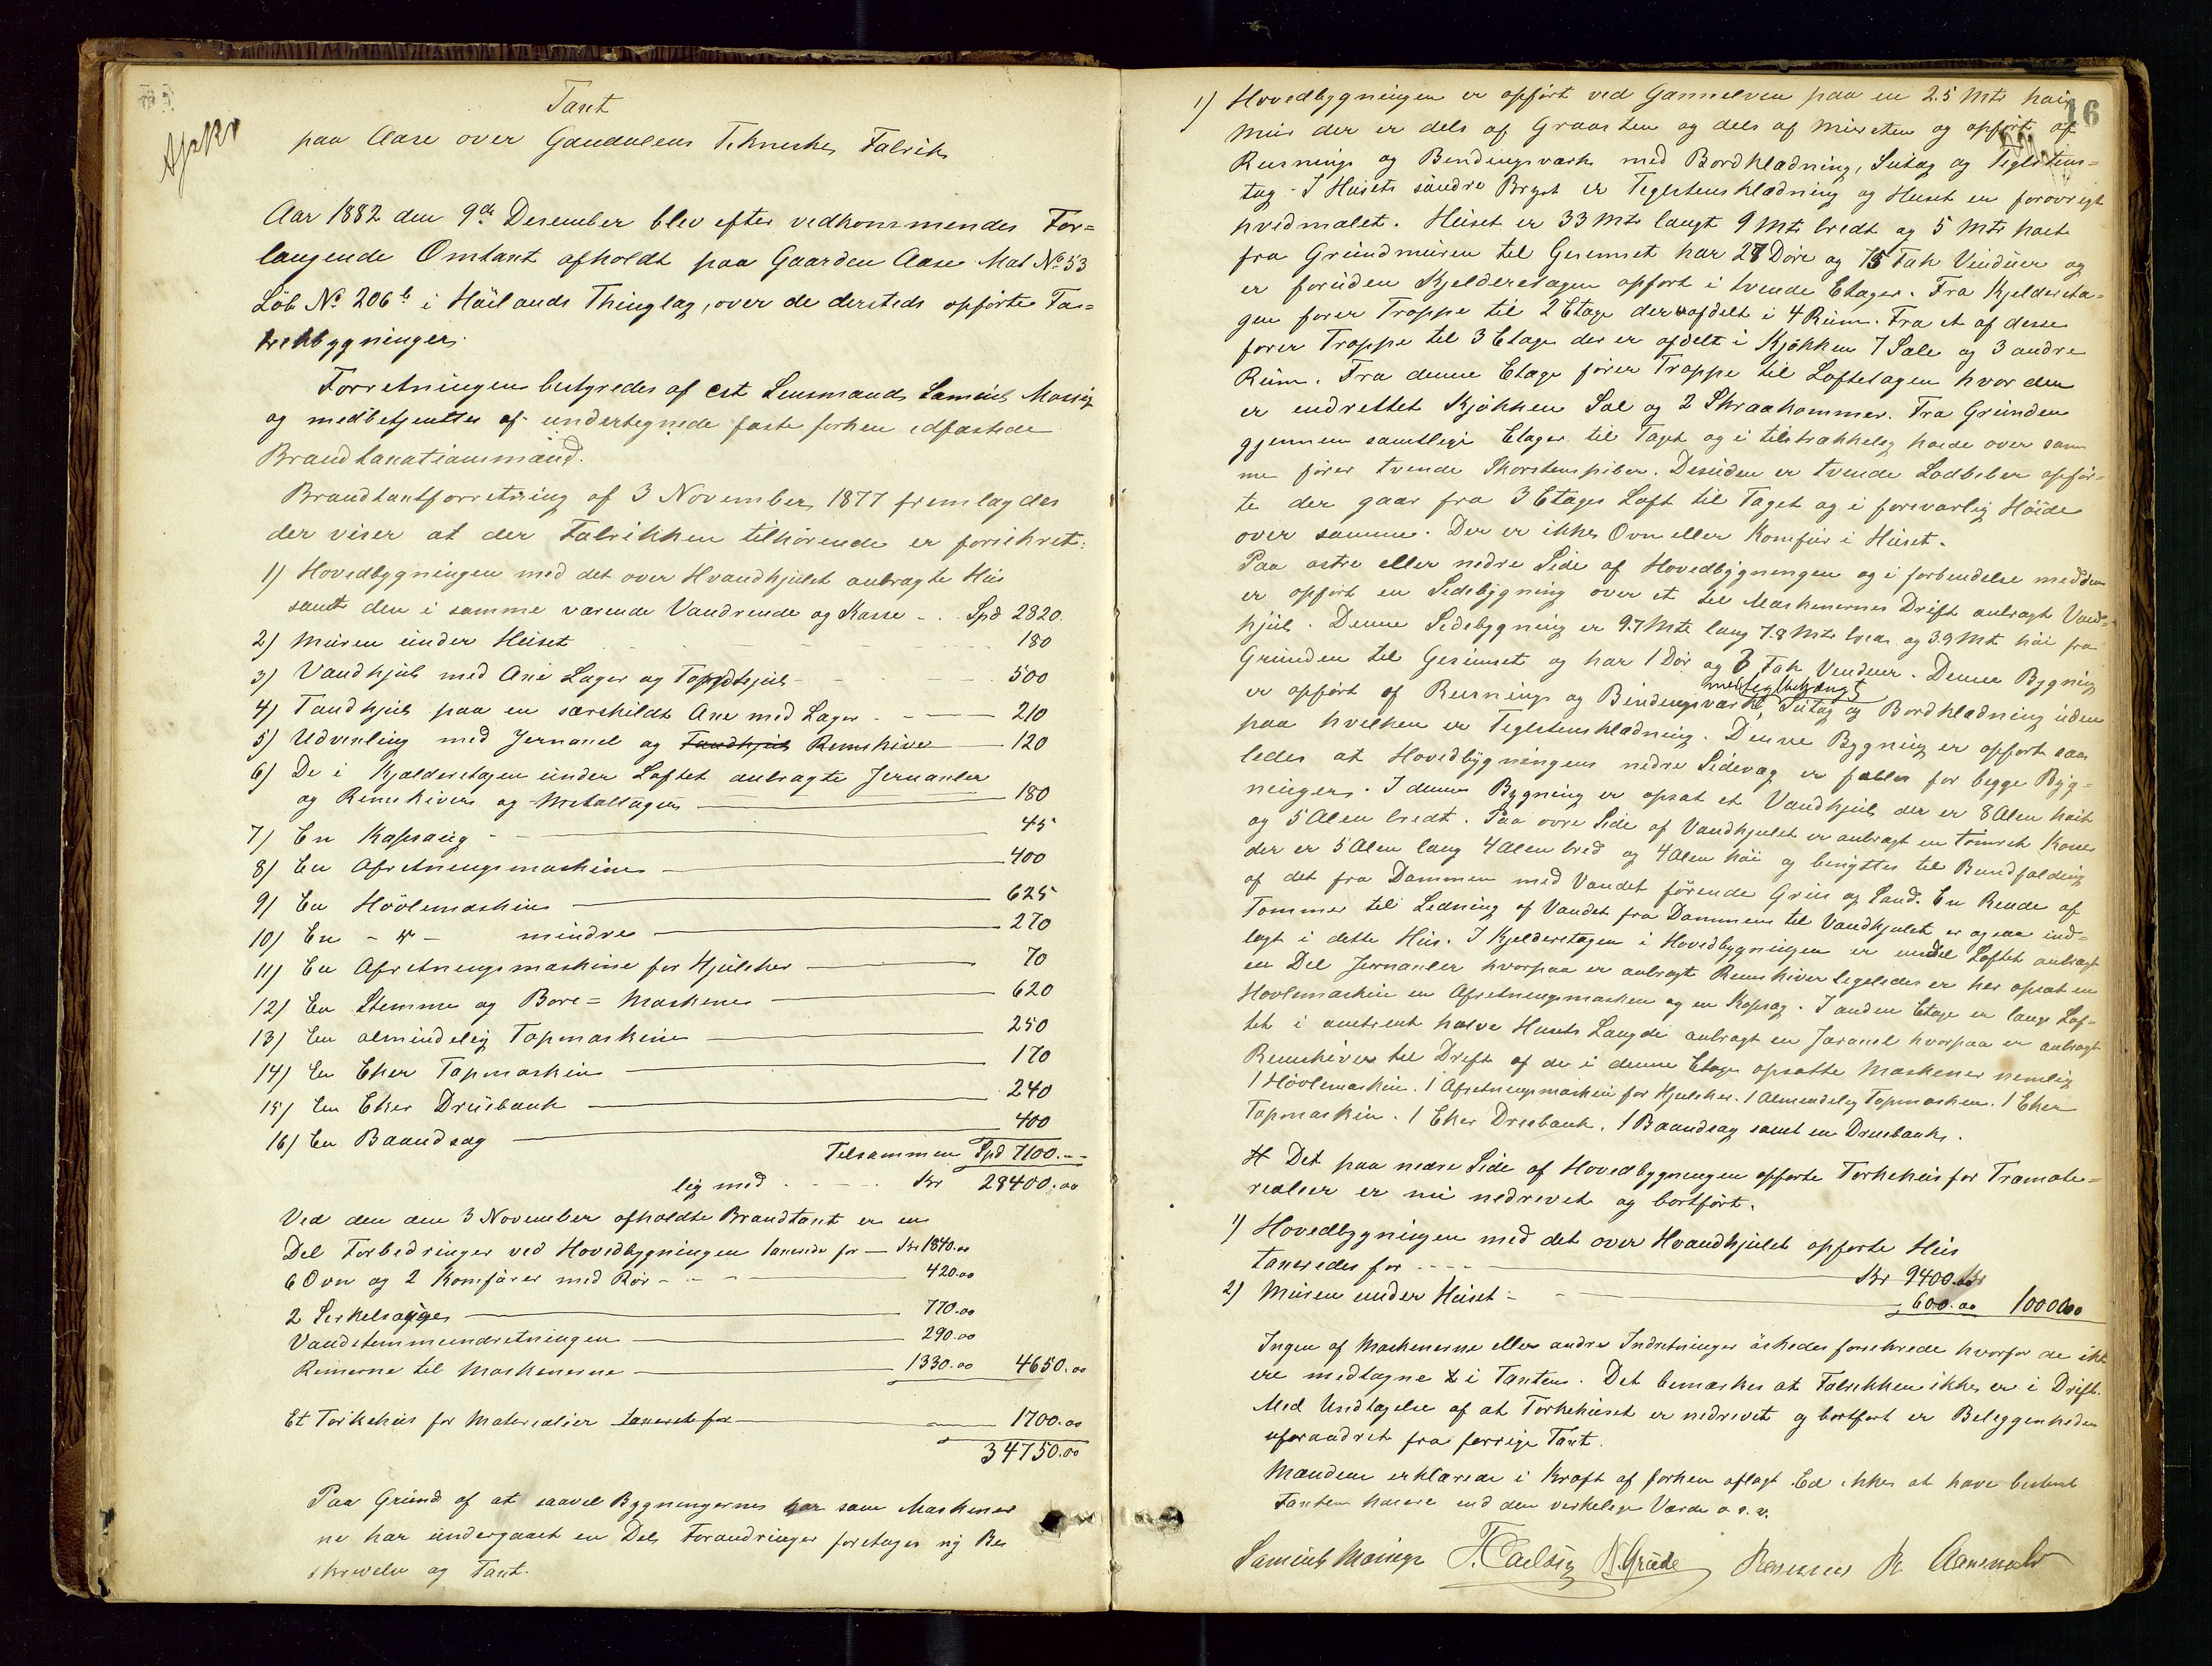 Taxt
paa Aase over Gandalens Tekniske Fabrik
Aar 1882 den 9de Desember blev efter vedkommendes For=
langende Omtaxt afholdt paa Gaarden Aase Mat No 53
Löb No 206b i Höilands Thinglag, over de dersteds opförte Fa=
brikbygninger.
Forretningen bestyredes af cst Lensmand Samuel Massig
og medbetjentes af undertegnede faste forhen edfæstede
Brandtaxationsmænd.
Brandtaxtforretning af 3 November 1877 fremlagdes
der viser at der Fabrikken tilhörende er forsikret:
1) Hovedbygningen med det over Hvandhjulet anbragte Hus
samt den i samme værende Vandrende og Kasse - . Spd 2820.
2) Muren under Huset 180
3) Vandhjul med Axe Lager og Tandhjul 500
4) Tandhjul paa en særskildt Axe med Lager - 210
5) Udvexling med Jernaxel og Tandhjul Remskiver 120
6) De i Kjælderetagen under Loftet anbragte Jernaxler
og Remskiver og Metallager 180
7) En Kapsaug - 45
8) En Afretningsmaskine 400
9) En Hövlemaskine 625
10) En - " - mindre 270
11) En Afretningsmaskine for Hjuleker 70
12) En Stemme og Bore = Maskine 620
13) En almindelig Tapmaskine 250
14) En Eker Tapmaskine 170
15) En Eker Dreiebænk 240
16) En Baandsag 400
Tilsammen Spd 7100.--
lig med . - - - . Kr 28400.00
Ved den den 3 November afholdte Brandtaxt er en
Del Forbedringer ved Hovedbygningen taxerede for - Kr 1840.00
6 Ovn og 2 Komfürer med Rör - - - 420.00
2 Sirkelsauger 770.00
Vandstemmeindretningen 290.00
Remerne til Maskinerne 1330.00 4650.00
Et Törkehus for Materialier taxeret for 1700.00
34750.00
Paa Grund af at saavel Bygningernes har som Maskiner
ne har undergaaet en Del Forandringer foretages ny Be
skrivelse og Taxt.
16
1) Hovedbygningen er opfört ved Gannelven paa en 2.5 Mtr höi
Mur der er dels af Graasten og dels af Mursten og opfört af
Reisnings og Bendingsværk med Bordklædning, Sutag og Teglstens=
tag. I Husets söndre Bryst er Teglstensklædning og Huset er forövrigt
hvidmalet. Huset er 33 Mtr langt 9 Mtr bredt og 5 Mtr höit
fra Grundmuren til Gesimset har 27 Döre og 75 Fak Vinduer og
er foruden Kjelderetagen opfört i tvende Etager. Fra Kjeldereta=
gen förer Trappe til 2 Etage der er afdelt i 4 Rum. Fra et af desse
förer Trappe til 3 Etage der er afdelt i Kjökken 7 Sale og 3 andre
Rum. Fra denne Etage förer Trappe til Loftetagen hvor der
er indrettet Kjökken Sal og 2 Skraakammer. Fra Grunden
gjennem samtlige Etager til Taget og i tilstrækkelig höide over sam
me förer tvende Skorstenspiber. Desuden er tvende Lodpiber opför=
te der gaar fra 3 Etages Loft til Taget og i forsvarlig Höide
over samme. Der er ikke Ovn eller Komfür i Huset.
Paa östre eller nedre Side af Hovedbygningen og i forbindelse med den
er opfört en Sidebygning over et til Maskinernes Drift anbragt Vand=
hjul. Denne Sidebygning er 9.7 Mtr lang 7.8 Mtr bred og 3.9 Mtr höi fra
Grunden til Gesimset og har 1 Dör og 6 Fak Vinduer. Denne Bygning
med teglhængt
er opfört af Reisnings og Bindingsværk, Sutag og Bordklædning uden
paa hvilken er Teglstensklædning. Denne Bygning er opfört saa
ledes at Hovedbygningens nedre Sidevæg er fælles for begge Byg=
ninger. I denne Bygning er opsat et Vandhjul der er 8 Alen höit
og 5 Alen bredt. Paa övre Side af Vandhjulet er anbragt en tömret Kasse
der er 5 Alen lang 4 Alen bred og 4 Alen höi og benyttes til Bundfældning
af det fra Dammen med Vandet förende Grus og Sand. En Rende af
Tömmer til Ledning af Vandet fra Dammen til Vandhjulet er ogsaa ind=
lagt i dette Hus. I Kjelderetagen i Hovedbygningen er under Loftet anbragt
en Del Jernaxler hvorpaa er anbragt Remskiver ligeledes er her opsat en
Hövlemaskin en Afretningsmaskin og en Kapsag. I anden Etage er langs Lof=
tet i omtrent halve Husets Længde anbragt en Jernaxel hvorpaa er anbragt
Remskiver til Drift af de i denne Etage opsatte Maskiner nemlig
1 Hövlemaskin. 1 Afretningsmaskin for Hjuleker. 1 Almindelig Tapmaskin. 1 Eker
Tapmaskin. 1 Eker Dreiebænk. 1 Baandsag samt en Dreiebænk.
Det paa nedre Side af Hovedbygningen opförte Törkehus for Træmate=
rialier er nu nedrevet og bortfört.
1) Hovedbygningen med det over Hvandhjulet opförte Hus
taxeredes for - - - - Kr 9400.00
2) Muren under Huset - 600.00 10000.00
Ingen af Maskinerne eller andre Indretninger önskedes forsikrede hvorfor de ikke
ere medtagne i Taxten. Det bemærkes at Fabrikken ikke er i Drift.
Med Undtagelse af at Törkehuset er nedrevet og bortfört er Beliggenheden
uforandret fra forrige Taxt.
Mændene erklærede i Kraft af forhen aflagt Ed ikke at have bestemt
Taxten höiere end den verkelige Værdi o. s. v.
Samuel Massige